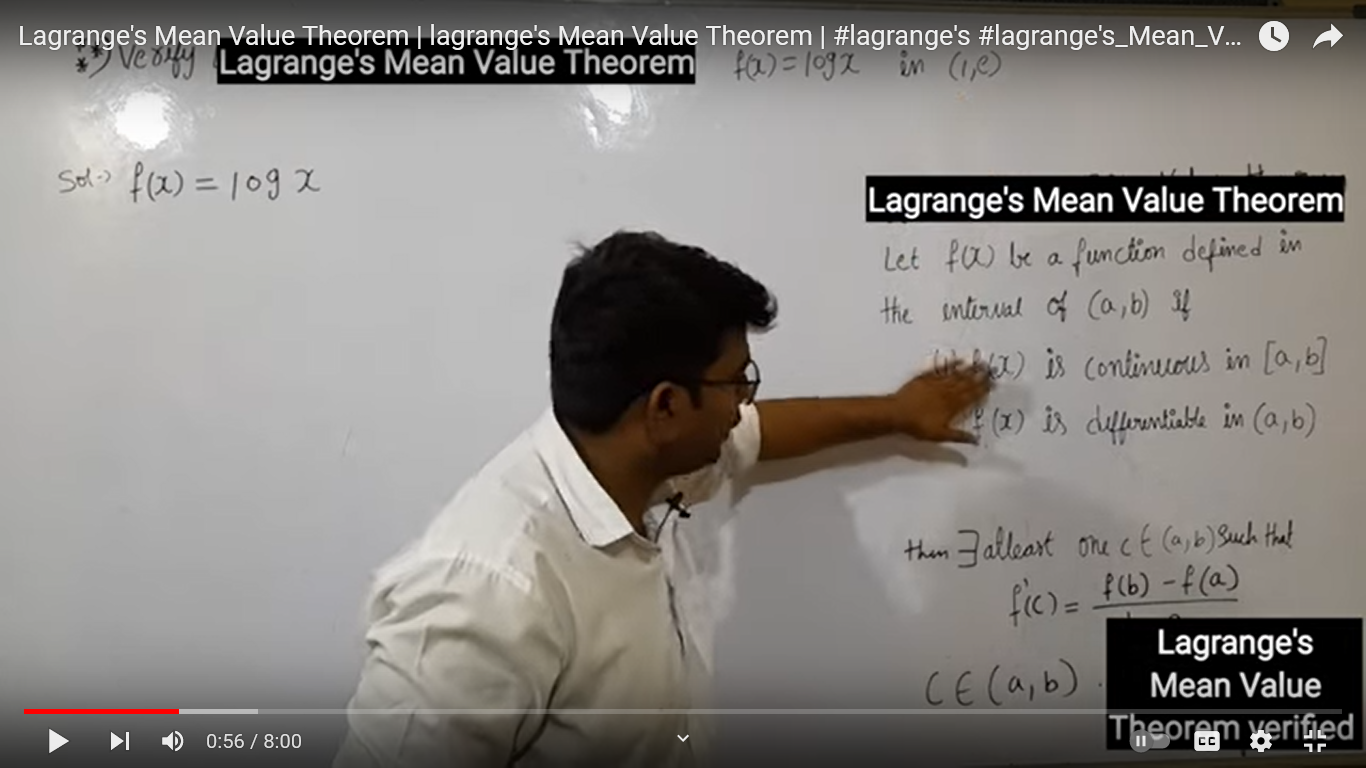 Lagrange's Mean Value Theorem | lagrange's Mean Value Theorem | #lagrange's #lagrange's_Mean_V...
**) Verify Lagrange's Mean Value Theorem f(x) = log x in (1,e)
Sol-> f(x) = log x
Lagrange's Mean Value Theorem
Let f(x) be a function defined in
the interval of (a,b) if
(x) is continuous in [a,b]
f(x) is differentiable in (a,b)
then ∃ atleast one c ∈ (a,b) Such that
f'(c) = f(b) - f(a)
C ∈ (a,b)
Lagrange's
Mean Value
Theorem verified
0:56 / 8:00
CC